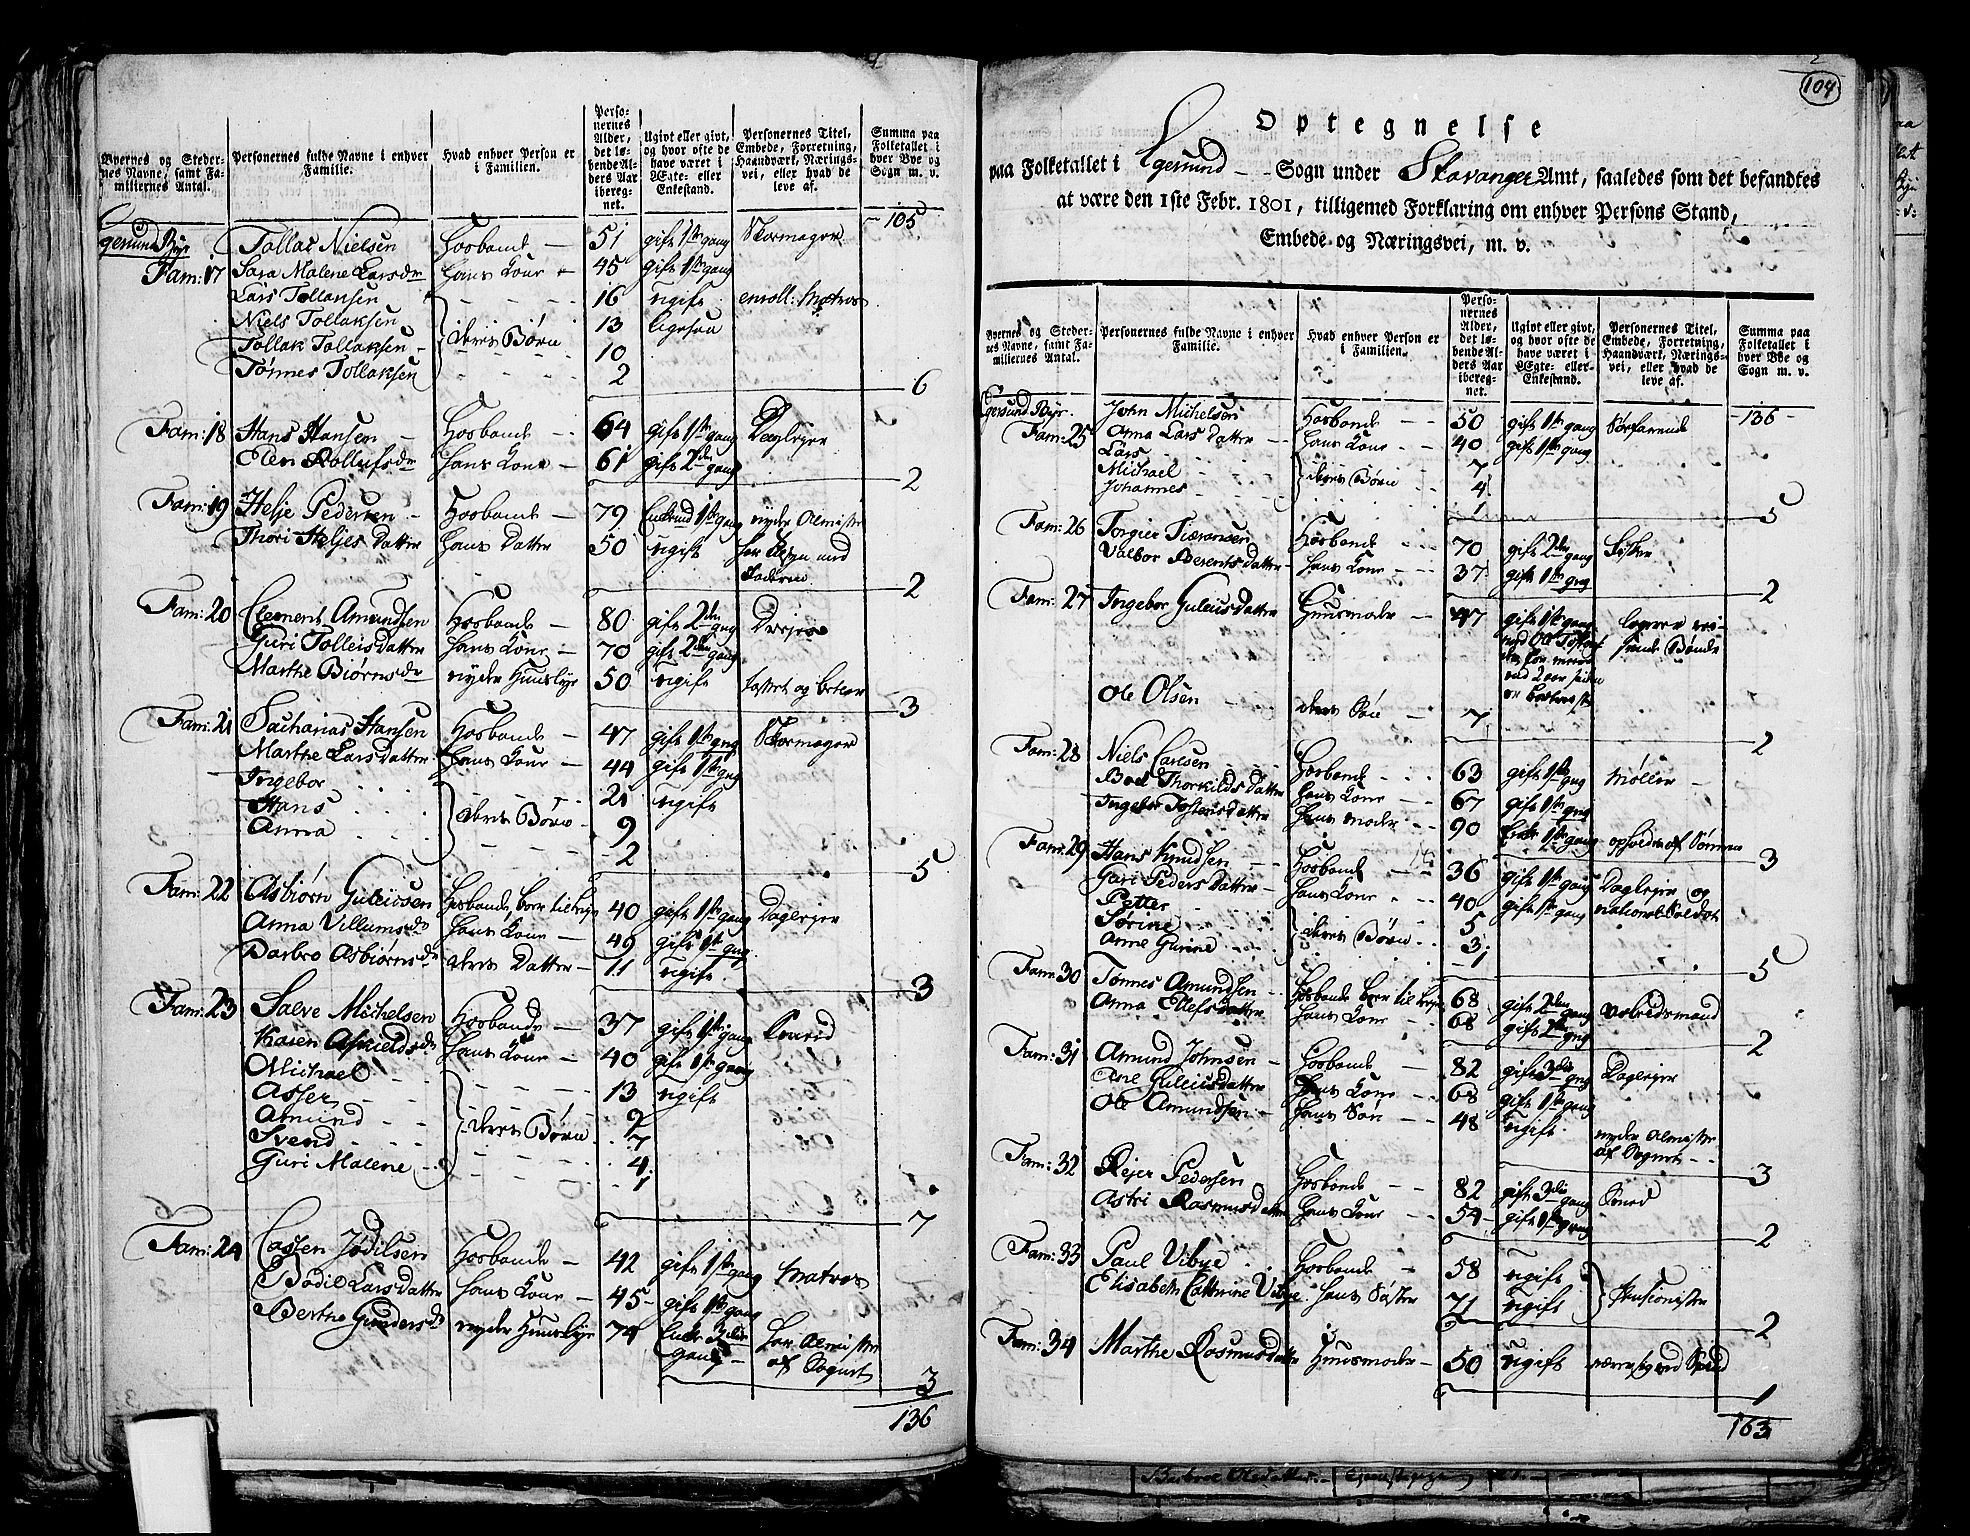 Byernes og Steder-
nes Navne, samt Fa-
miliernes Antal.
Personernes fulde Navne i enhver
Familie.
Hvad enhver Person er
i Familien.
Perso-
nernes
Alder,
det lø-
bende Al-
ders Aar
ibereg-
net.
Ugivt eller givt,
og hvor ofte de
have været i
Ægte- eller
Enkestand.
Personernes Titel,
Embede, Forretning,
Haandværk, Nærings-
vei, eller hvad de
leve af.
Summa paa
Folketallet i
hver Bye og
Sogn m. v.
Egersund Bye Tollac Nielsen Hosbonde 51 gift 1ste gang Skomager 105
Fam: 17 Sara Malene Larsdr hans Kone 45 gift 1ste gang
Lars Tollaksen 16 ugift enroll: Matros
Niels Tollaksen 13 ligesaa
Tollak Tollaksen deres Børn 10
Tønnes Tollaksen 2
6
Fam: 18 Hans Hansen Hosbonde 64 gift 1ste gang Daglejer
Elen Rollufsdr hans Kone 61 gift 2den gang
2
Fam: 19 Helje Pedersen Hosbonde 79 1ste gang nyder Almisse
Thori Heljes Datter hans Datter 50 ugift
Faderen
2
Fam: 20 Clement Amundsen Hosbonde 80 gift 2den gng Drejer
Guri Tolleis Datter hans Kone 70 gift 2den gang
Marthe Biørnsdr nyder Huuslye 50 ugift og betler
3
Fam: 21 Sacharias Hansen Hosbonde 47 gift 1ste gng Skomager
Marthe Lars Datter hans Kone 44 gift 1ste gng
Ingebor 21 ugift
Hans deres Børn 9
Anna 2
5
Fam: 22 Asbiørn Guleiksen Hosbonde, 40 gift 1ste gang Daglejer
Anna Villumsdr hans Kone 49 gift 1ste gng
Barbro Asbiørnsdr deres Datter 11 ugift
3
Fam: 23 Salve Michelsen Hosbonde 37 gift 1ste gang
Karen hans Kone 40 gift 1ste gang
Michael 13 ugift
Asser 9
Amund deres Børn 7
Svend 4
Guri Malene 1
7
Fam: 24 Casten Jødilsen Hosbonde 42 gift 1ste gang Matros
Bodil Lars Datter hans Kone 45 gift 1ste gang
Berthe Gundersdr nyder Huuslye 74 Enke 3die gang har Almisse
af Sognet
3
136
104
Optegnelse
paa Folketallet i Egersund Sogn under Stavanger Amt, saaledes som det befandtes
at være den 1ste Febr. 1801, tilligemed Forklaring om enhver Persons Stand,
Embede og Næringsvei, m. v.
Byernes og Steder-
nes Navne, samt Fa-
miliernes Antal.
Personernes fulde Navne i enhver
Familie.
Hvad enhver Person er
i Familien.
Perso-
nernes
Alder,
det lø-
bende Al-
ders Aar
ibereg-
net.
Ugivt eller givt,
og hvor ofte de
have været i
Ægte- eller
Enkestand.
Personernes Titel,
Embede, Forretning,
Haandværk, Nærings-
vei, eller hvad de
leve af.
Summa paa
Folketallet i
hver Bye og
Sogn m. v.
Egersund Bye. John Michelsen Hosbonde 50 gift 1ste gang Søefarende 136
Fam: 25 Anna Lars Datter hans Kone 40 gift 1ste gang
Lars 7
Michael deres Børn 4
Johannes 1
5
Fam: 26 Torgier Hosbonde 70 gift 2den gang Fisker
Valbor Berents Datter hans Kone 37 gift 1ste gng
2
Fam: 27 Ingebor Guleiks Datter Huusmoder 47 gift 1ste gang
Ole Olsen deres Søn 7
2
Fam: 28 Niels Carlsen Hosbonde 63 gift 1ste gng Møller
Boel Thorkilds Datter hans Kone 67 gift 1ste gng
Ingebor Tostens Datter hans Moder 90 Enke 1ste gang opholdes af Sønnen
3
Fam: 29 Hans Knudsen Hosbonde 36 gift 1ste gang Daglejer og
Guri Peders Datter hans Kone 40 gift 1ste gang national Soldat
Petter 5
Sørine deres Børn 3
Anne Gurine 1
5
Fam: 30 Tønnes Amundsen Hosbonde 68 gift 2den gang Arbeidsmand
Anna Ellefsdatter hans Kone 68 gift 2den gng
2
Fam: 31 Amund Johnsen Hosbonde 82 gift 3die gng Daglejer
Ane Guleiksdatter hans Kone 68 gift 1ste gang
Ole Amundsen hans Søn 48 ugift nyder Almisse
af Sognet
3
Fam: 32 Rejer Pedersen Hosbonde 82 gift 3die gang
Astri Rasmusdatter hans Kone 54 gift 1ste gang
2
Fam: 33 Paul Vibye Hosbonde 58 ugift
Elisabeth Cathrine Vibye hans Søster 71 ugift Pensionister
2
Fam: 34 Marthe Rasmusdatter Huusmoder 50 ugift
1
163